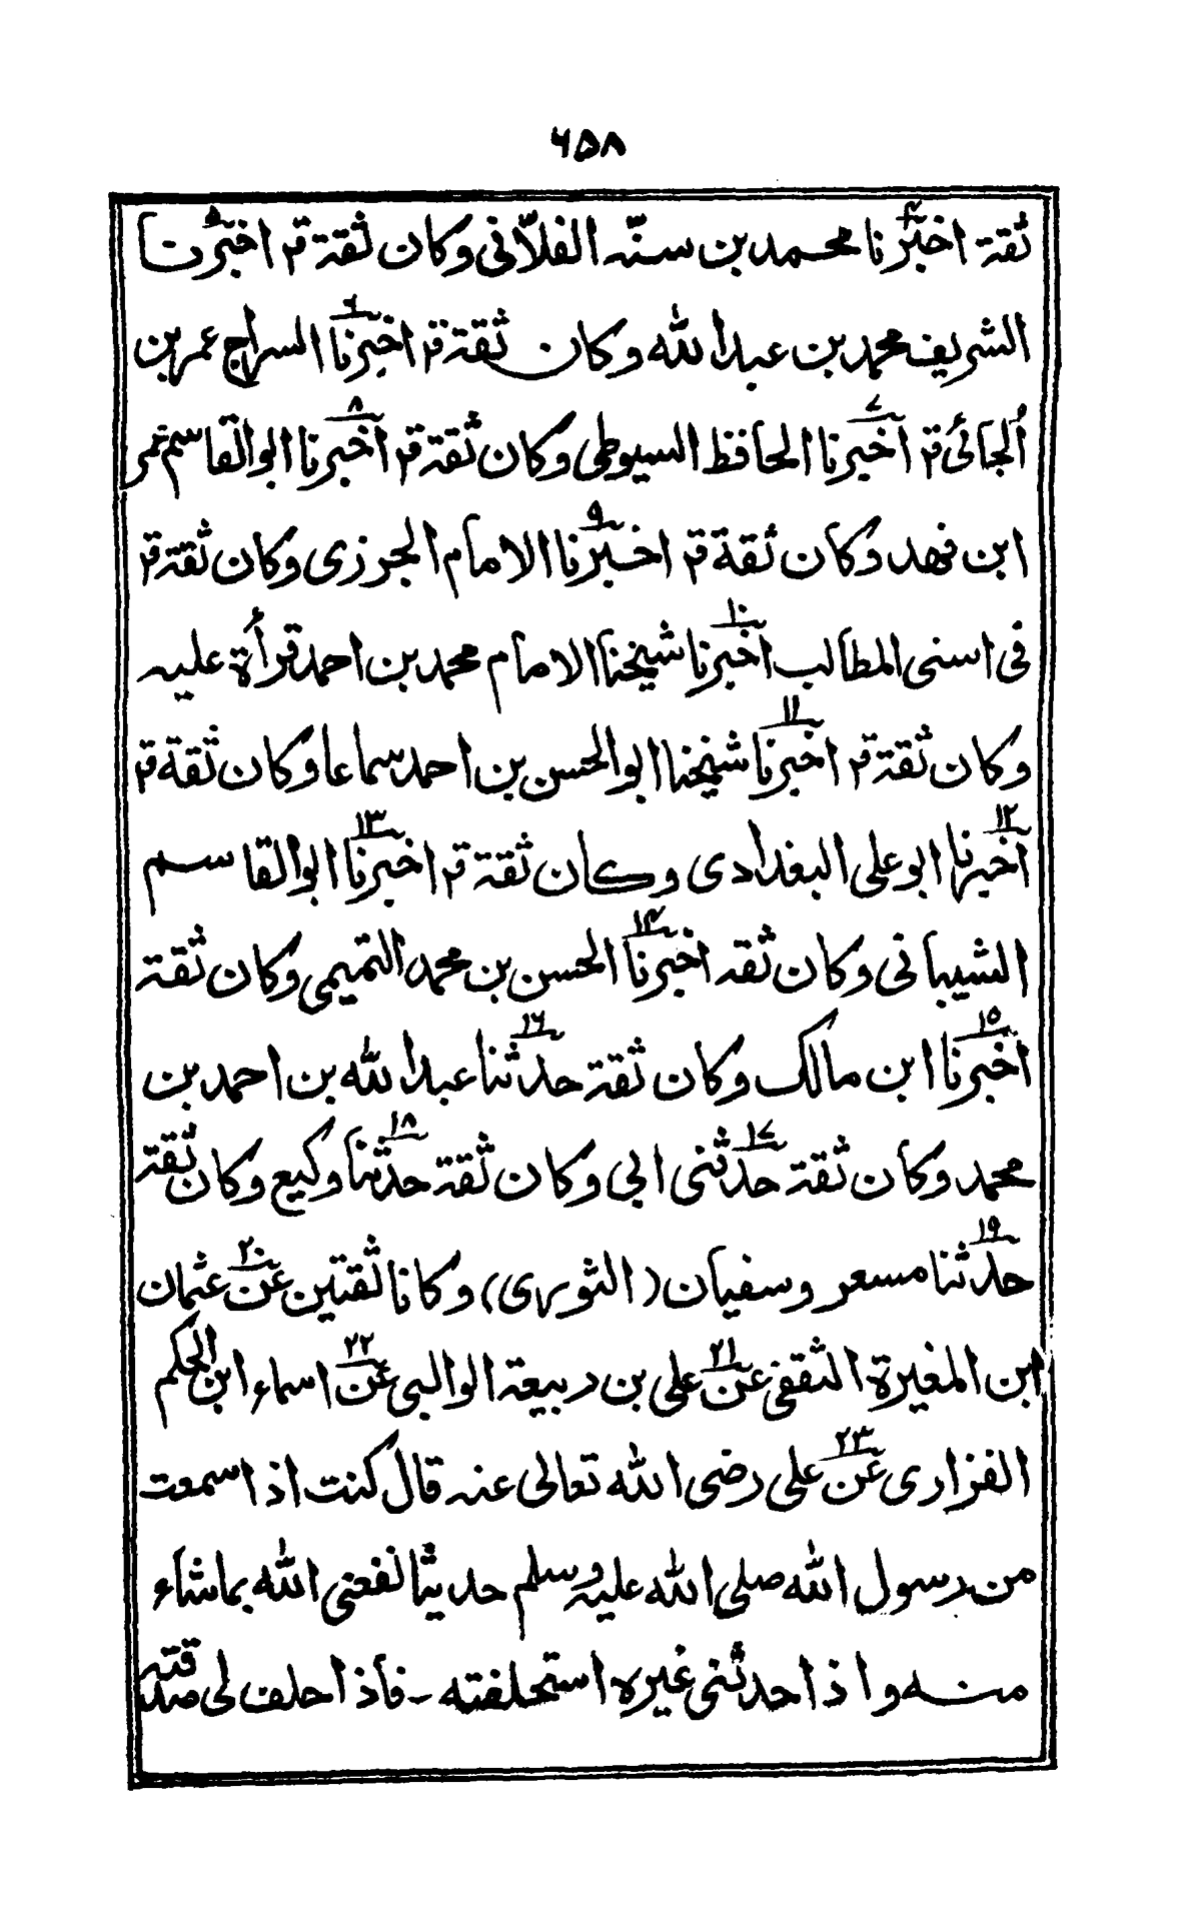 ۶۵۸
ثقة اخبرنا۴ محمد بن سنّه الفلّانی وکان ثقة قر اخبرنا۵
الشریف محمد بن عبدالله وکان ثقة قر اخبرنا۶ السراج عمر بن
الجائی قر اخبرنا۷ الحافظ السیوطی وکان ثقة قر اخبرنا۸ ابوالقاسم عمر
ابن فهد وکان ثقة قر اخبرنا۹ الامام الجرزی وکان ثقة قر
فی اسنی المطالب اخبرنا۱۰ شیخنا الامام محمد بن احمد قرأة علیه
وکان ثقة قر اخبرنا۱۱ شیخنا ابوالحسن بن احمد سماعا وکان ثقة قر
اخبرنا۱۲ ابو علی البغدادی وکان ثقة قر اخبرنا۱۳ ابوالقاسم
الشیبانی وکان ثقه اخبرنا۱۴ الحسن بن محمد التمیمی وکان ثقة
اخبرنا۱۵ ابن مالک وکان ثقة حدثنا۱۶ عبدالله بن احمد بن
محمد وکان ثقة حدثنی۱۷ ابی وکان ثقة حدثنا۱۸ وکیع وکان ثقة
حدثنا۱۹ مسعر وسفیان (الثوری) وکانا ثقتین عن۲۰ عثمان
ابن المغیرة الثقفی عن۲۱ علی بن ربیعة الوالبی عن۲۲ اسماء ابن الحکم
الفزاری عن۲۳ علی رضی الله تعالی عنه قال کنت اذا سمعت
من رسول الله صلی الله علیه وسلم حدیثا نفعنی الله بماشاء
منه واذا حدثنی غیره استحلفته ـ فاذا حلف لی صدقته